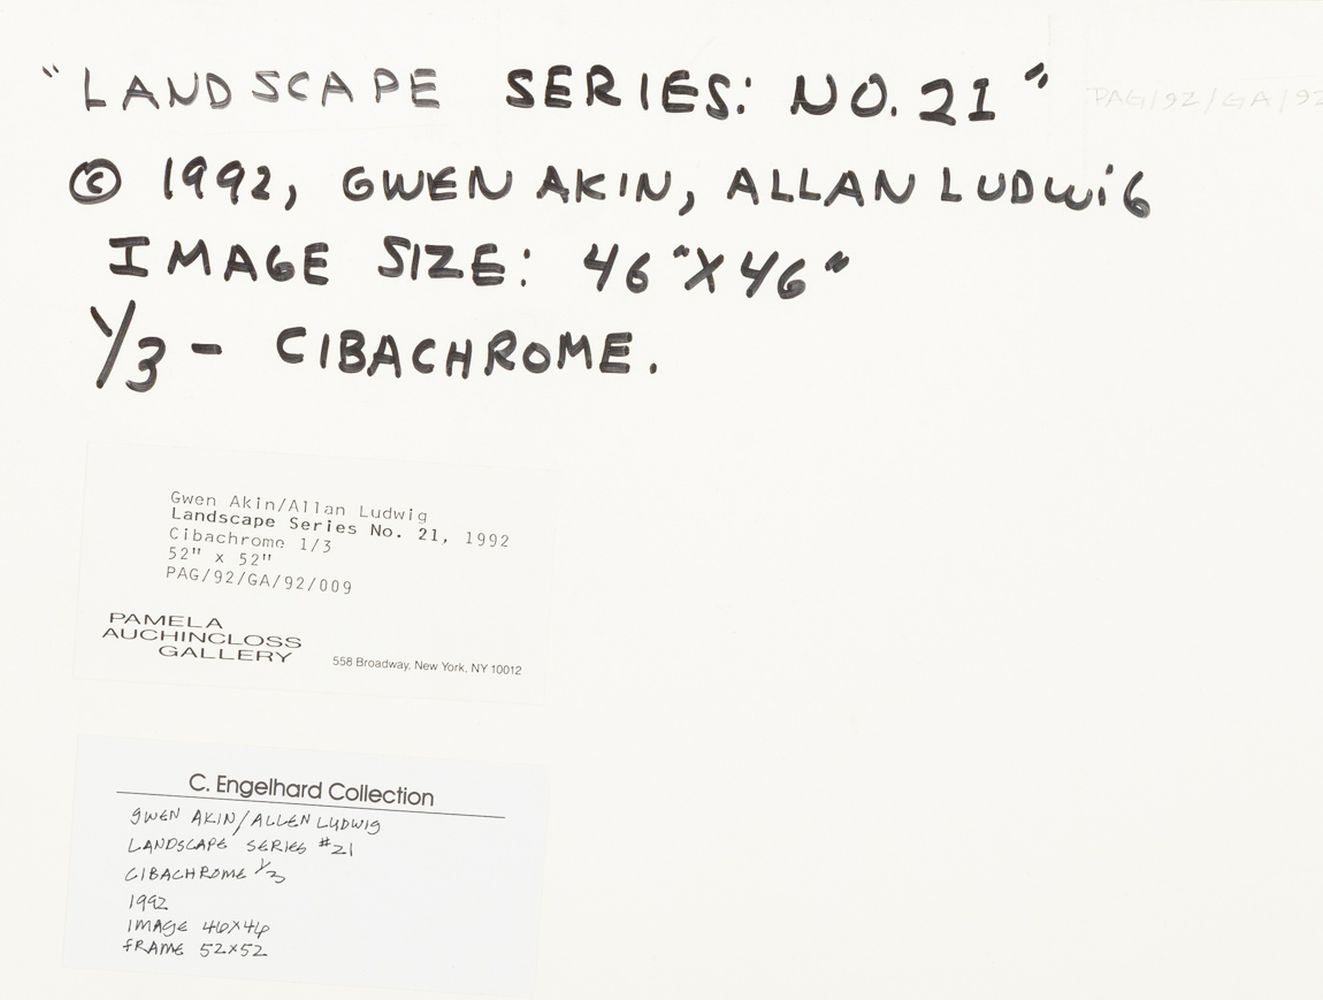 "LANDSCAPE SERIES: NO. 21"
PAG/92/GA/92
© 1992, GWEN AKIN, ALLAN LUDWiG
IMAGE SIZE: 46"X46"
1/3 - CIBACHROME.
Gwen Akin/Allan Ludwig
Landscape Series No. 21, 1992
Cibachrome 1/3
52" x 52"
PAG/92/GA/92/009
PAMELA
AUCHINCLOSS
GALLERY
558 Broadway, New York, NY 10012
C. Engelhard Collection
GWEN AKIN/ALLEN LUDWIG
LANDSCAPE SERIES #21
CIBACHROME 1/3
1992
IMAGE 46X46
FRAME 52X52